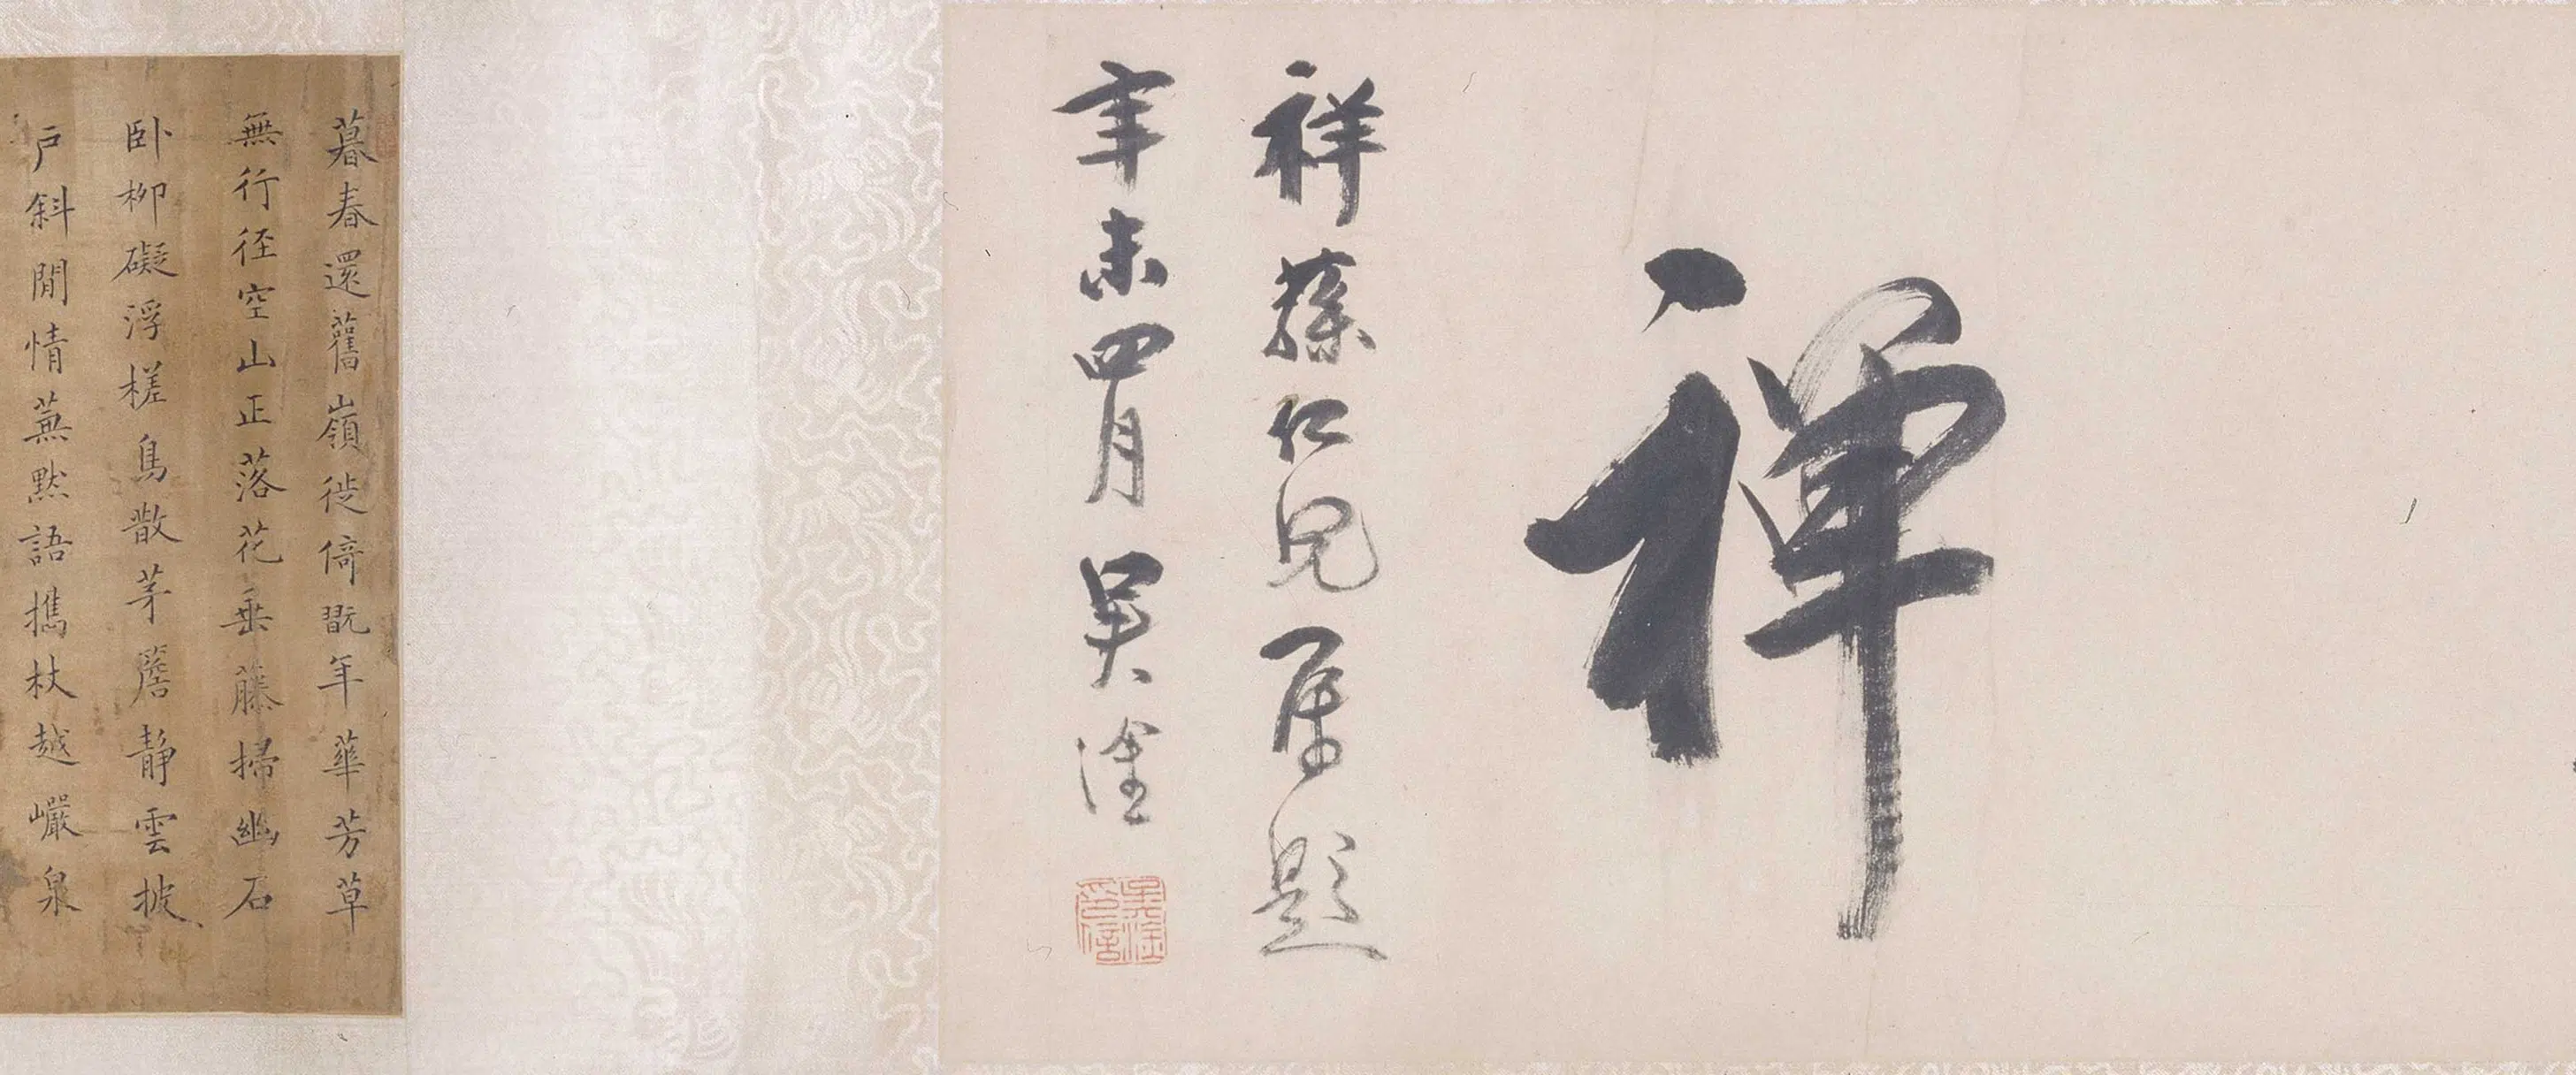 禪
祥蓀仁兄属題
辛未四月吳淦
吳淦印信
暮春還舊嶺徙倚翫年華芳草
無行徑空山正落花垂藤掃幽石
卧柳礙浮槎鳥散茅簷靜雲披
戶斜閒情兼默語攜杖越巗泉